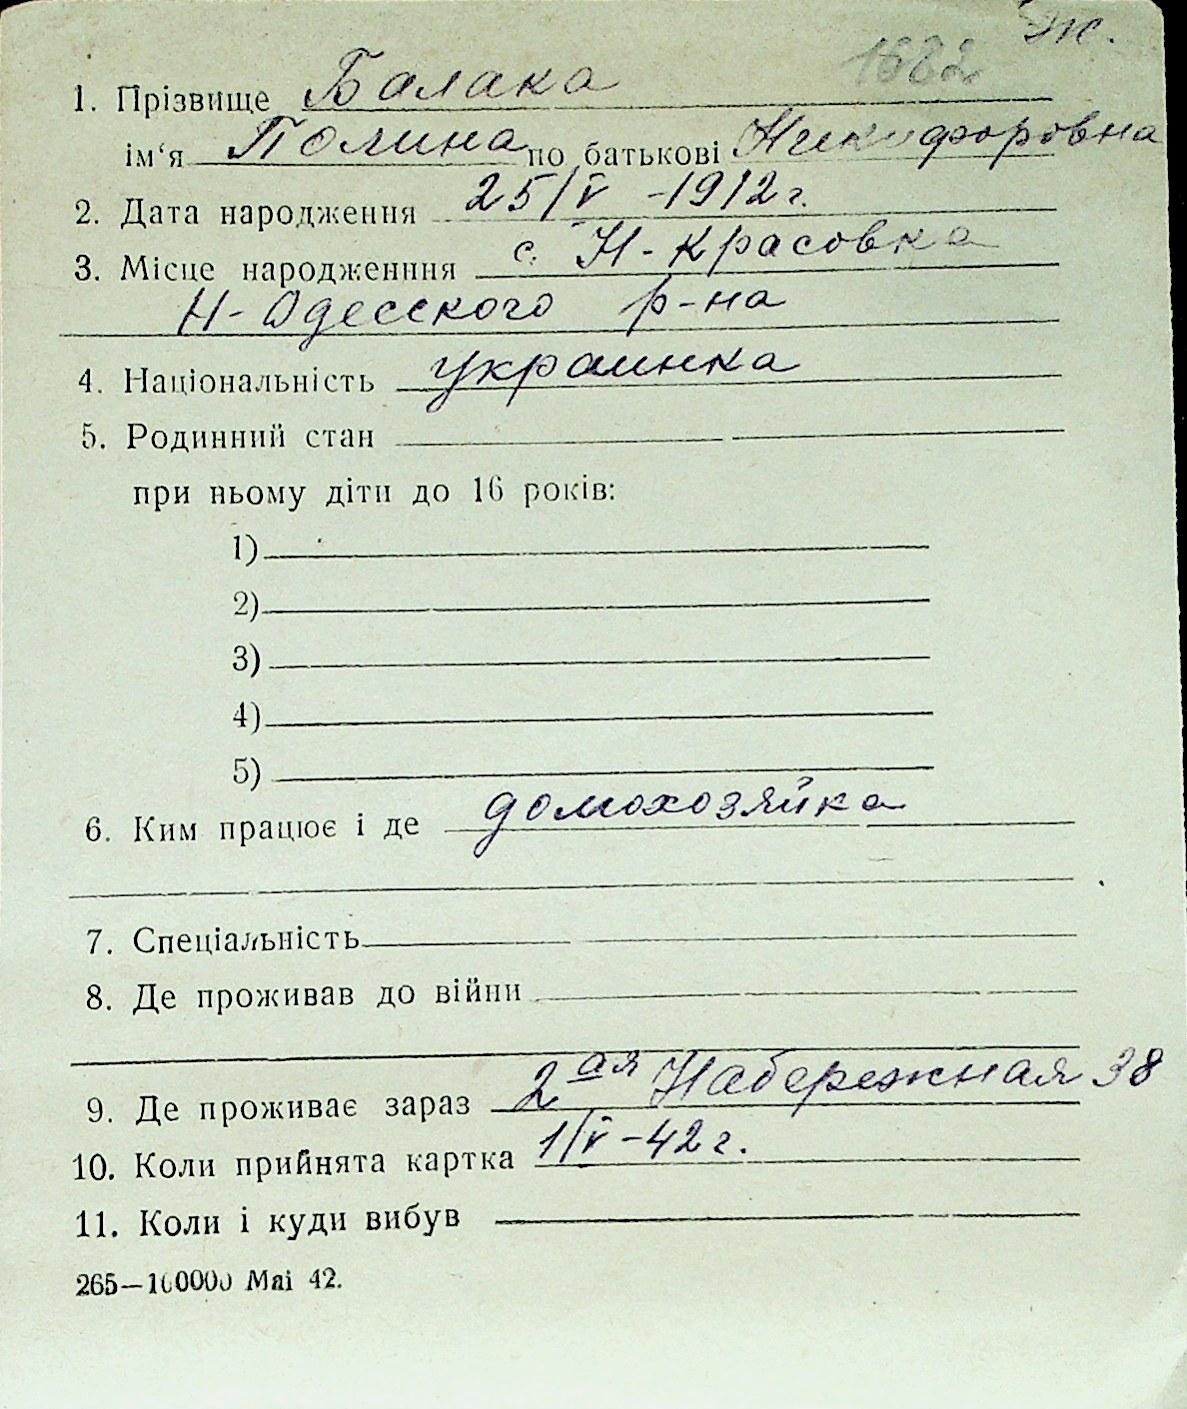 Ж.
1682
1. Прізвище Балака
ім‘я Полина по батькові Никифоровна
2. Дата народження 25/V -1912 г.
3. Місце народженння с. Н-Красовка
Н-Одесского р-на
4. Національність украинка
5. Родинний стан
при ньому діти до 16 років:
1)
2)
3)
4)
5)
6. Ким працює і де домохозяйка
7. Спеціальність
8. Де проживав до війни
9. Де проживає зараз 2ая Набережная 38
10. Коли прийнята картка 1/V-42 г.
11. Коли і куди вибув
265—100000 Mai 42.